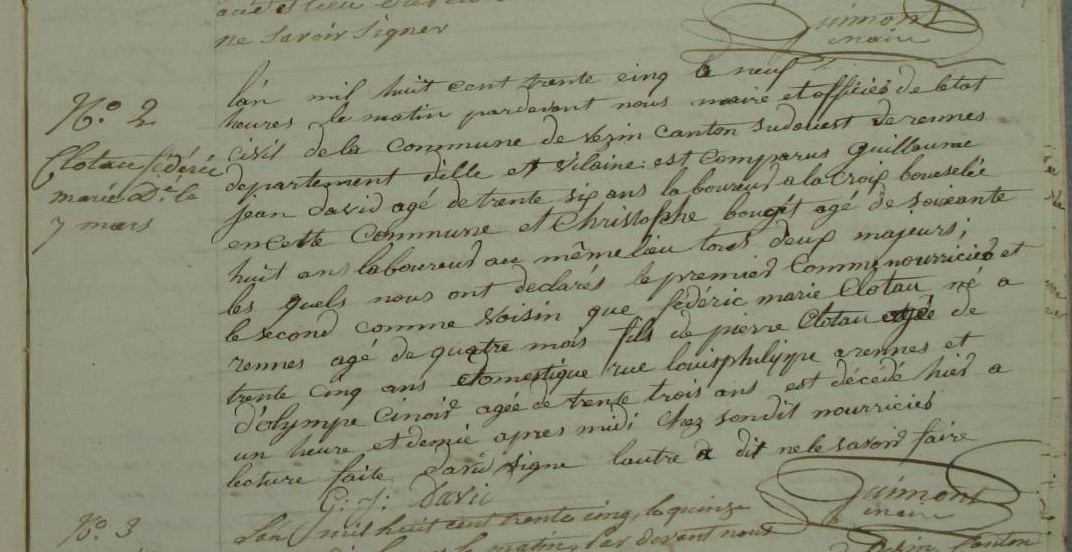 ne savoir signer
Guimont
maire
N.o 2
Clotau fédéric
marie D.e le
7 mars
lan mil huit cent trente cinq le neuf
heures le matin pardevant nous maire et officier de letat
civil de la commune de vezin canton sudouest de rennes
departement dille et vilaine : est comparus guillaume
jean david agé de trente six ans laboureur a la croix boueselée
en cette commune et Christophe bougit agé de soixante
huit ans laboureur au même lieu tous deux majeurs ;
les quels nous ont declarés le premier comme nourricier et
le second comme voisin que fédéric marie Clotau né a
rennes agé de quatre mois fils de pierre Clotau agé de
trente cinq ans domestique rue louisphilippe a rennes et
d'olympe Cinoir agée de trente trois ans est décédé hier a
un heure et demie apres midi chez sondit nourricier
lecture faite David signe lautre a dit ne le savoir faire
G. J. Davi
Guimont
maire
N.o 3
Lan mil huit cent trente cinq, le quinze
le matin, par devant nous